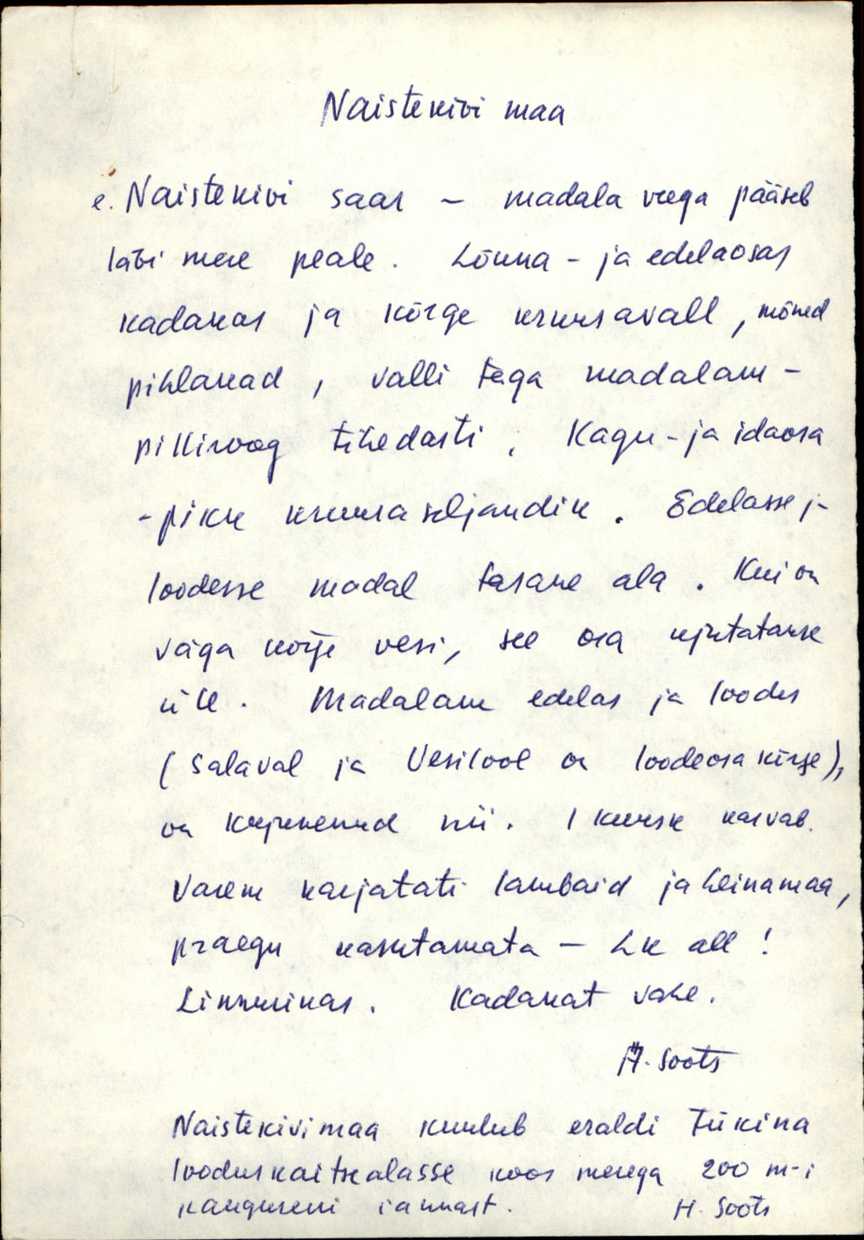 Naistekivi maa
e. Naistekivi saar – madala veega pääseb
läbi mere peale. Lõuna- ja edelaosas
kadakas ja kõrge kruusavall, mõned
pihlakad, valli taga madalam –
pilliroog tihedasti. Kagu- ja idaosa
- pikk kruusaseljandik. Edelasse ja
loodesse madal tasane ala. Kui on
väga kõrge vesi, see osa ujutatakse
üle. Madalam edelas ja loodes
(Salaval ja Vesilool on loodeosa kõrge),
on kujunenud nii. 1 kuusk kasvab.
Varem karjatati lambaid ja heinamaa,
praegu kasutamata – Lk all!
Linnurikas. Kadakat vähe.
H. Soots
Naistekivimaa kuulub eraldi tükina
looduskaitsealasse koos merega 200 m-i
kauguseni rannast. H. Soots